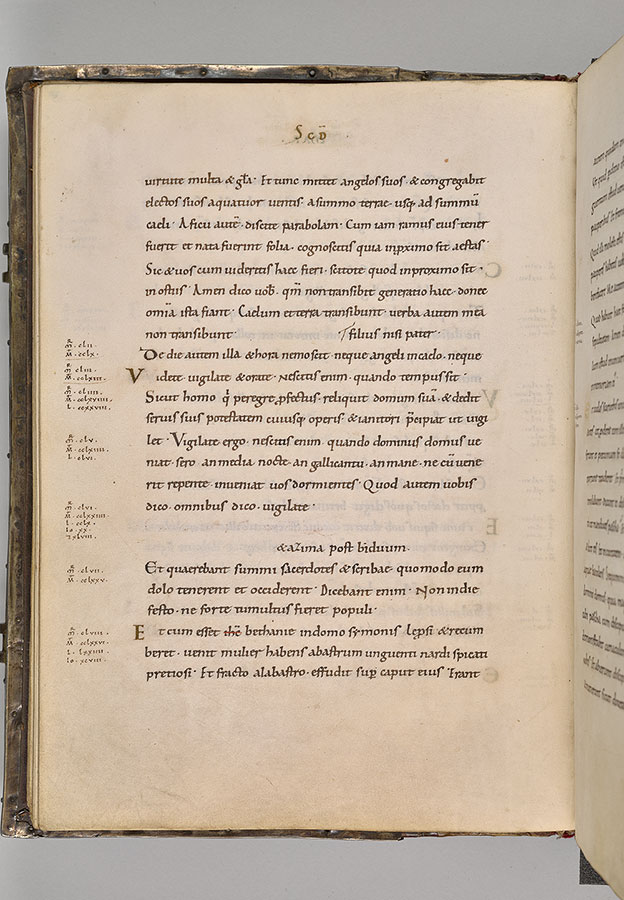 Scd̄
uirtute multa & gl̄a. Et tunc mittet angelos suos. & congregabit
electos suos aquatuor uentis. asummo terrae. usq; ad summū
caeli. A ficu autē. discite parabolam. Cum iam ramus eius tener
fuerit et nata fuerint folia. cognoscitis quia inproximo sit aestas.
Sic & uos cum uideritis haec fieri. scitote quod inproximo sit.
in ostiis. Amen dico uob̄. qm̄ non transibit generatio haec. donec
omīa ista fiant. Caelum et terra transibunt. uerba autem mea
non transibunt. filius nisi pater.
m̄. clii
M̄. cclx.
De die autem illa & hora nemo scit. neque angeli incaelo. neque
m̄ cliii.
M̄. cclxiii.
Videte. uigilate & orate. Nescitis enim. quando tempus sit.
m̄. cliiii.
M̄. cclxviiii.
L. ccxxviii.
Sicut homo q̄ peregre, pfectus. reliquit domum suā. & dedit
seruis suis potestatem cuiusq; operis. & ianitori p̄cipiat ut uigi
m̄. clv.
M̄. cclxiiii.
L. clvi.
let. Vigilate ergo. nescitis enim. quando dominus domus ue
niat. sero. an media nocte. an gallicantu. an mane. ne cū uene
rit repente. inueniat uos dormientes. Quod autem uobis
m̄. clvi.
M̄. cclxxiiii
L. cclx.
Io. xx.
dico. omnibus dico. uigilate.
& azima post biduum.
m̄. clvii.
M̄. cclxxv.
Et quaerebant summi sacerdotes & scribae. quomodo eum
dolo tenerent et occiderent. Dicebant enim. Non indie
festo. ne forte tumultus fieret populi.
m̄. clviii.
M̄. cclxxvi.
L. lxxiiii.
Io. xcviii.
Et cum esset ihc̄ bethanie indomo symonis lepsi & recum
beret. uenit mulier habens abastrum unguenti nardi spicati
pretiosi. Et fracto alabastro. effudit sup̄ caput eius. Erant